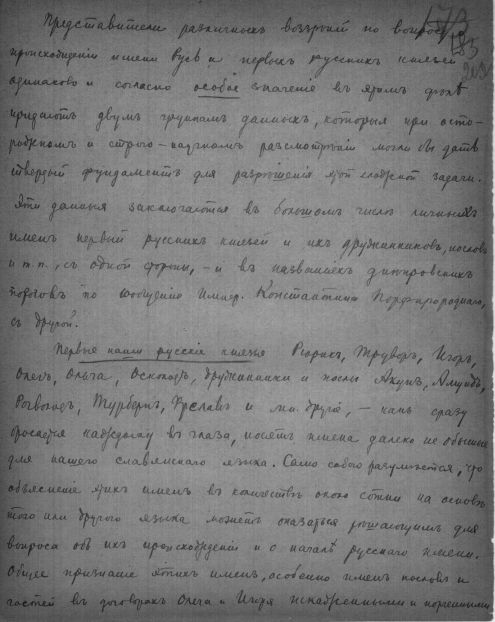 Представители различныхъ воззрѣній по вопросу о
происхожденіи имени Русь и первыхъ русскихъ князей
одинаково и согласно особое значеніе въ этомъ
придаютъ двумъ группамъ данныхъ, которыя при осто-
рожномъ и строго-научномъ разсмотрѣніи могли бы дать
твердый фундаментъ для разрѣшенія этой сложной задачи.
Эти данныя заключаются въ большомъ числѣ личныхъ
именъ первыхъ русскихъ князей и ихъ дружинниковъ, пословъ
и т.п., съ одной стороны, – и въ названіяхъ днѣпровскихъ
пороговъ по сообщенію Импер. Константина Порфиророднаго,
съ другой.
Первые наши русскіе князья Рюрикъ, Труворъ, Игорь,
Олегъ, Ольга, Осколодъ, дружинники и послы Акунъ, Алмундъ,
Рогволодъ, Турбернъ, Фрелавъ и мн. другіе, – какъ сразу
бросается каждому въ глаза, носятъ имена далеко не обычныя
для нашего славянскаго языка. Само собою разумѣется, что
объясненіе этихъ именъ въ количествѣ около сотни на основѣ
того или другого языка можетъ оказаться рѣшающимъ для
вопроса объ ихъ происхожденіи и о началѣ русскаго имени.
Общее признаніе этихъ именъ, особенно именъ пословъ и
гостей въ договорахъ Олега и Игоря искаженными и порченными